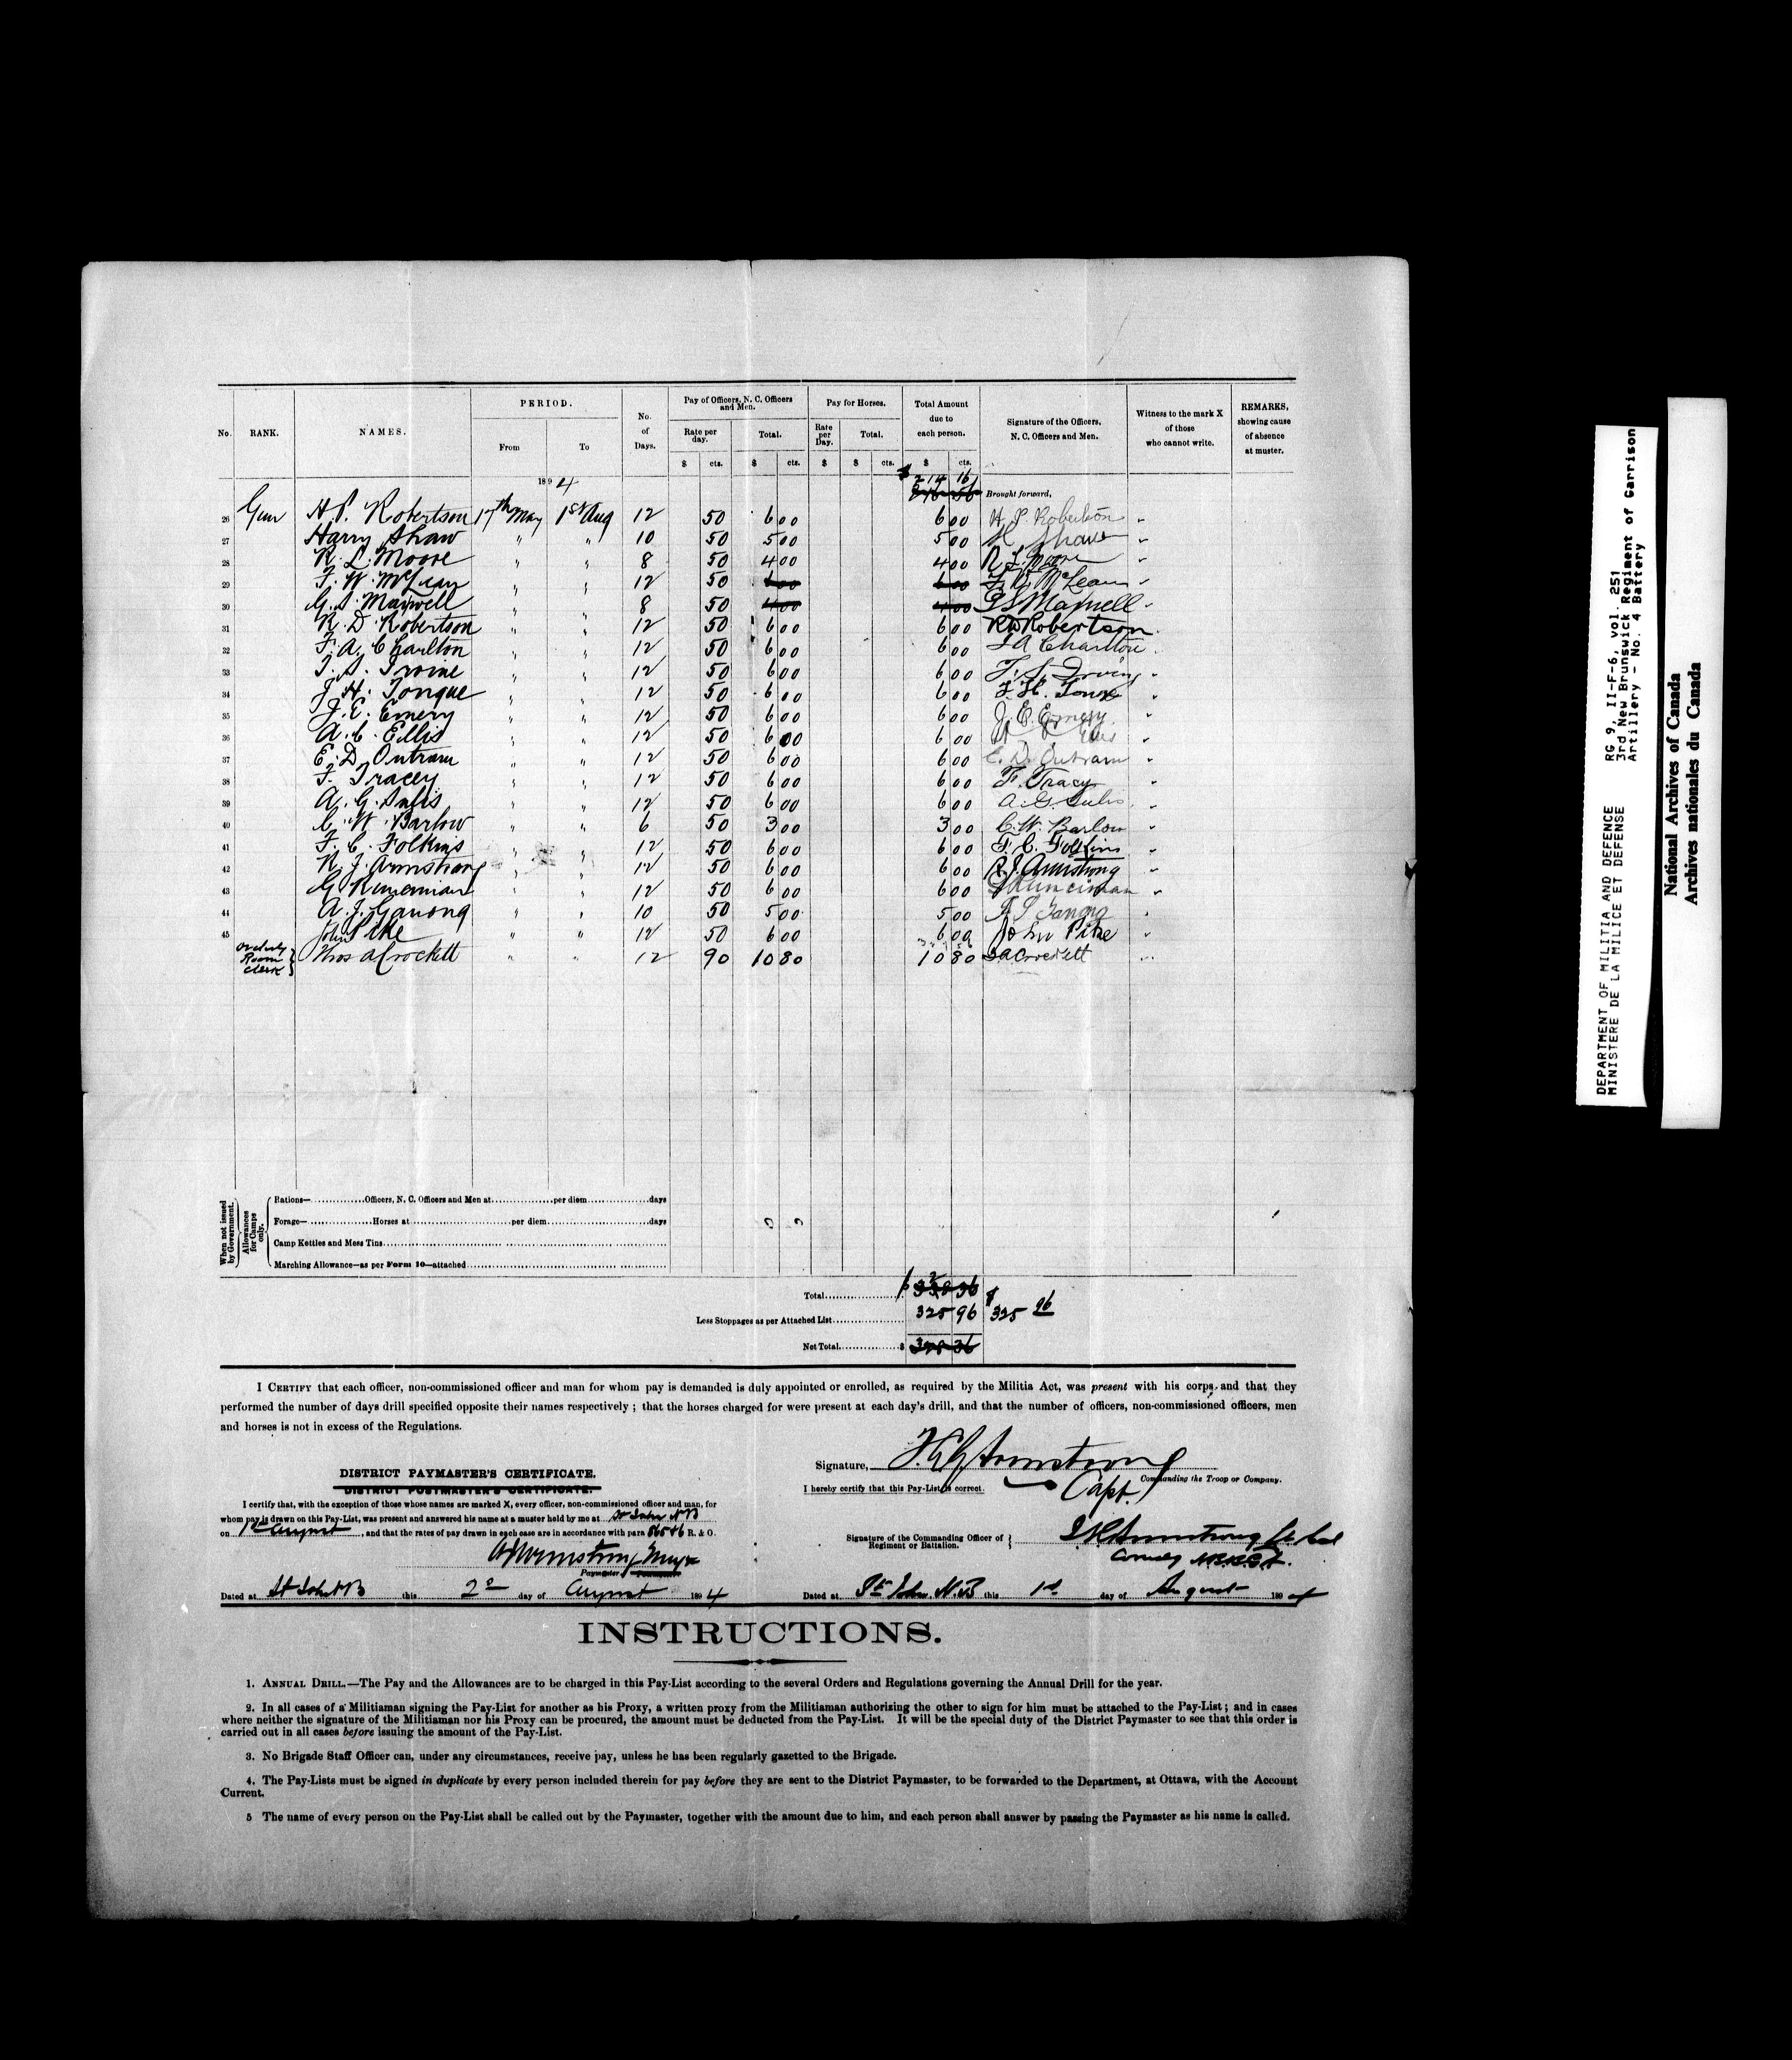 No. RANK. NAMES. PERIOD. From To No. of Days. Pay of Officers, N. C. Officers and Men. Rate per day. Total. Pay for Horses. Rate per Day. Total. Total Amount due to each person. Signature of the Officers, N. C. Officers and Men. Witness to the mark X of those who cannot write. REMARKS, showing cause of absence at muster.
$ cts. $ cts. $ $ cts. $ cts.
1894 $ 214 16 Brought forward,
26 Gun H. P. Robertson 17th May 1st Aug 12 50 6 00 6 00 H. P. Robertson "
27 Harry Shaw " " 10 50 5 00 5 00 H Shaw "
28 R. L. Moore " " 8 50 4 00 4 00 R L Moore "
29 F. W. McLean " " 12 50 6 00 6 00 F. W. McLean "
30 G. S. Maxwell " " 8 50 4 00 4 00 G S Maxwell "
31 R. D. Robertson " " 12 50 6 00 6 00 R D Robertson "
32 F. A. Charlton " " 12 50 6 00 6 00 F A Charlton "
33 T. S. Irvine " " 12 50 6 00 6 00 T. S. Irvine "
34 J. H. Tonque " " 12 50 6 00 6 00 "
35 J. E. Emery " " 12 50 6 00 6 00 J. E. Emery "
36 A. C. Ellis " " 12 50 6 00 6 00 Ellis "
37 E. D. Outram " " 12 50 6 00 6 00 E. D. Outram "
38 F. Tracey " " 12 50 6 00 6 00 F. Tracy "
39 A. G. Sulis " " 12 50 6 00 6 00 A. G. Sulis "
40 C. W. Barlow " " 6 50 3 00 3 00 C. W. Barlow "
41 F. C. Folkins " " 12 50 6 00 6 00 F. C. Folkins "
42 R. J. Armstrong " " 12 50 6 00 6 00 R. J. Armstrong "
43 G Runciman " " 12 50 6 00 6 00 G Runciman "
44 A. J. Ganong " " 10 50 5 00 5 00 A J Ganong "
45 John Pike " " 12 50 6 00 6 00 John Pike "
Orderly Room Clerk } Thos A Crockett " " 12 90 10 80 10 80 A Crockett "
When not issued by Government. Allowances for Camps only.
Rations—..............Officers, N. C. Officers and Men at..............per diem..............days
Forage—..............Horses at..............per diem..............days
Camp Kettles and Mess Tins..............
Marching Allowance—as per Form 10—attached..............
Total.............. $ 338 36
Less Stoppages as per Attached List.............. 325 96 $ 325 96
Net Total..............$ 328 36
I CERTIFY that each officer, non-commissioned officer and man for whom pay is demanded is duly appointed or enrolled, as required by the Militia Act, was present with his corps, and that they
performed the number of days drill specified opposite their names respectively ; that the horses charged for were present at each day's drill, and that the number of officers, non-commissioned officers, men
and horses is not in excess of the Regulations.
Signature, Armstrong
Capt. Commanding the Troop or Company.
I hereby certify that this Pay-List is correct.
DISTRICT PAYMASTER'S CERTIFICATE.
DISTRICT POSTMASTER'S CERTIFICATE.
I certify that, with the exception of those whose names are marked X, every officer, non-commissioned officer and man, for
whom pay is drawn on this Pay-List, was present and answered his name at a muster held by me at St John N B
on 1st August, and that the rates of pay drawn in each case are in accordance with para R. & O.
Armstrong Major
Paymaster
Signature of the Commanding Officer of Regiment or Battalion. } J R Armstrong Lt Col
Dated at St John N B this 2d day of August 1894
Dated at St. John N. B this 1st day of August 1894
INSTRUCTIONS.
1. ANNUAL DRILL.—The Pay and the Allowances are to be charged in this Pay-List according to the several Orders and Regulations governing the Annual Drill for the year.
2. In all cases of a Militiaman signing the Pay-List for another as his Proxy, a written proxy from the Militiaman authorizing the other to sign for him must be attached to the Pay-List ; and in cases
where neither the signature of the Militiaman nor his Proxy can be procured, the amount must be deducted from the Pay-List. It will be the special duty of the District Paymaster to see that this order is
carried out in all cases before issuing the amount of the Pay-List.
3. No Brigade Staff Officer can, under any circumstances, receive pay, unless he has been regularly gazetted to the Brigade.
4. The Pay-Lists must be signed in duplicate by every person included therein for pay before they are sent to the District Paymaster, to be forwarded to the Department, at Ottawa, with the Account
Current.
5 The name of every person on the Pay-List shall be called out by the Paymaster, together with the amount due to him, and each person shall answer by passing the Paymaster as his name is called.
DEPARTMENT OF MILITIA AND DEFENCE
MINISTERE DE LA MILICE ET DEFENSE
RG 9, II-F-6, vol. 251
3rd New Brunswick Regiment of Garrison
Artillery - No. 4 Battery
National Archives of Canada
Archives nationales du Canada